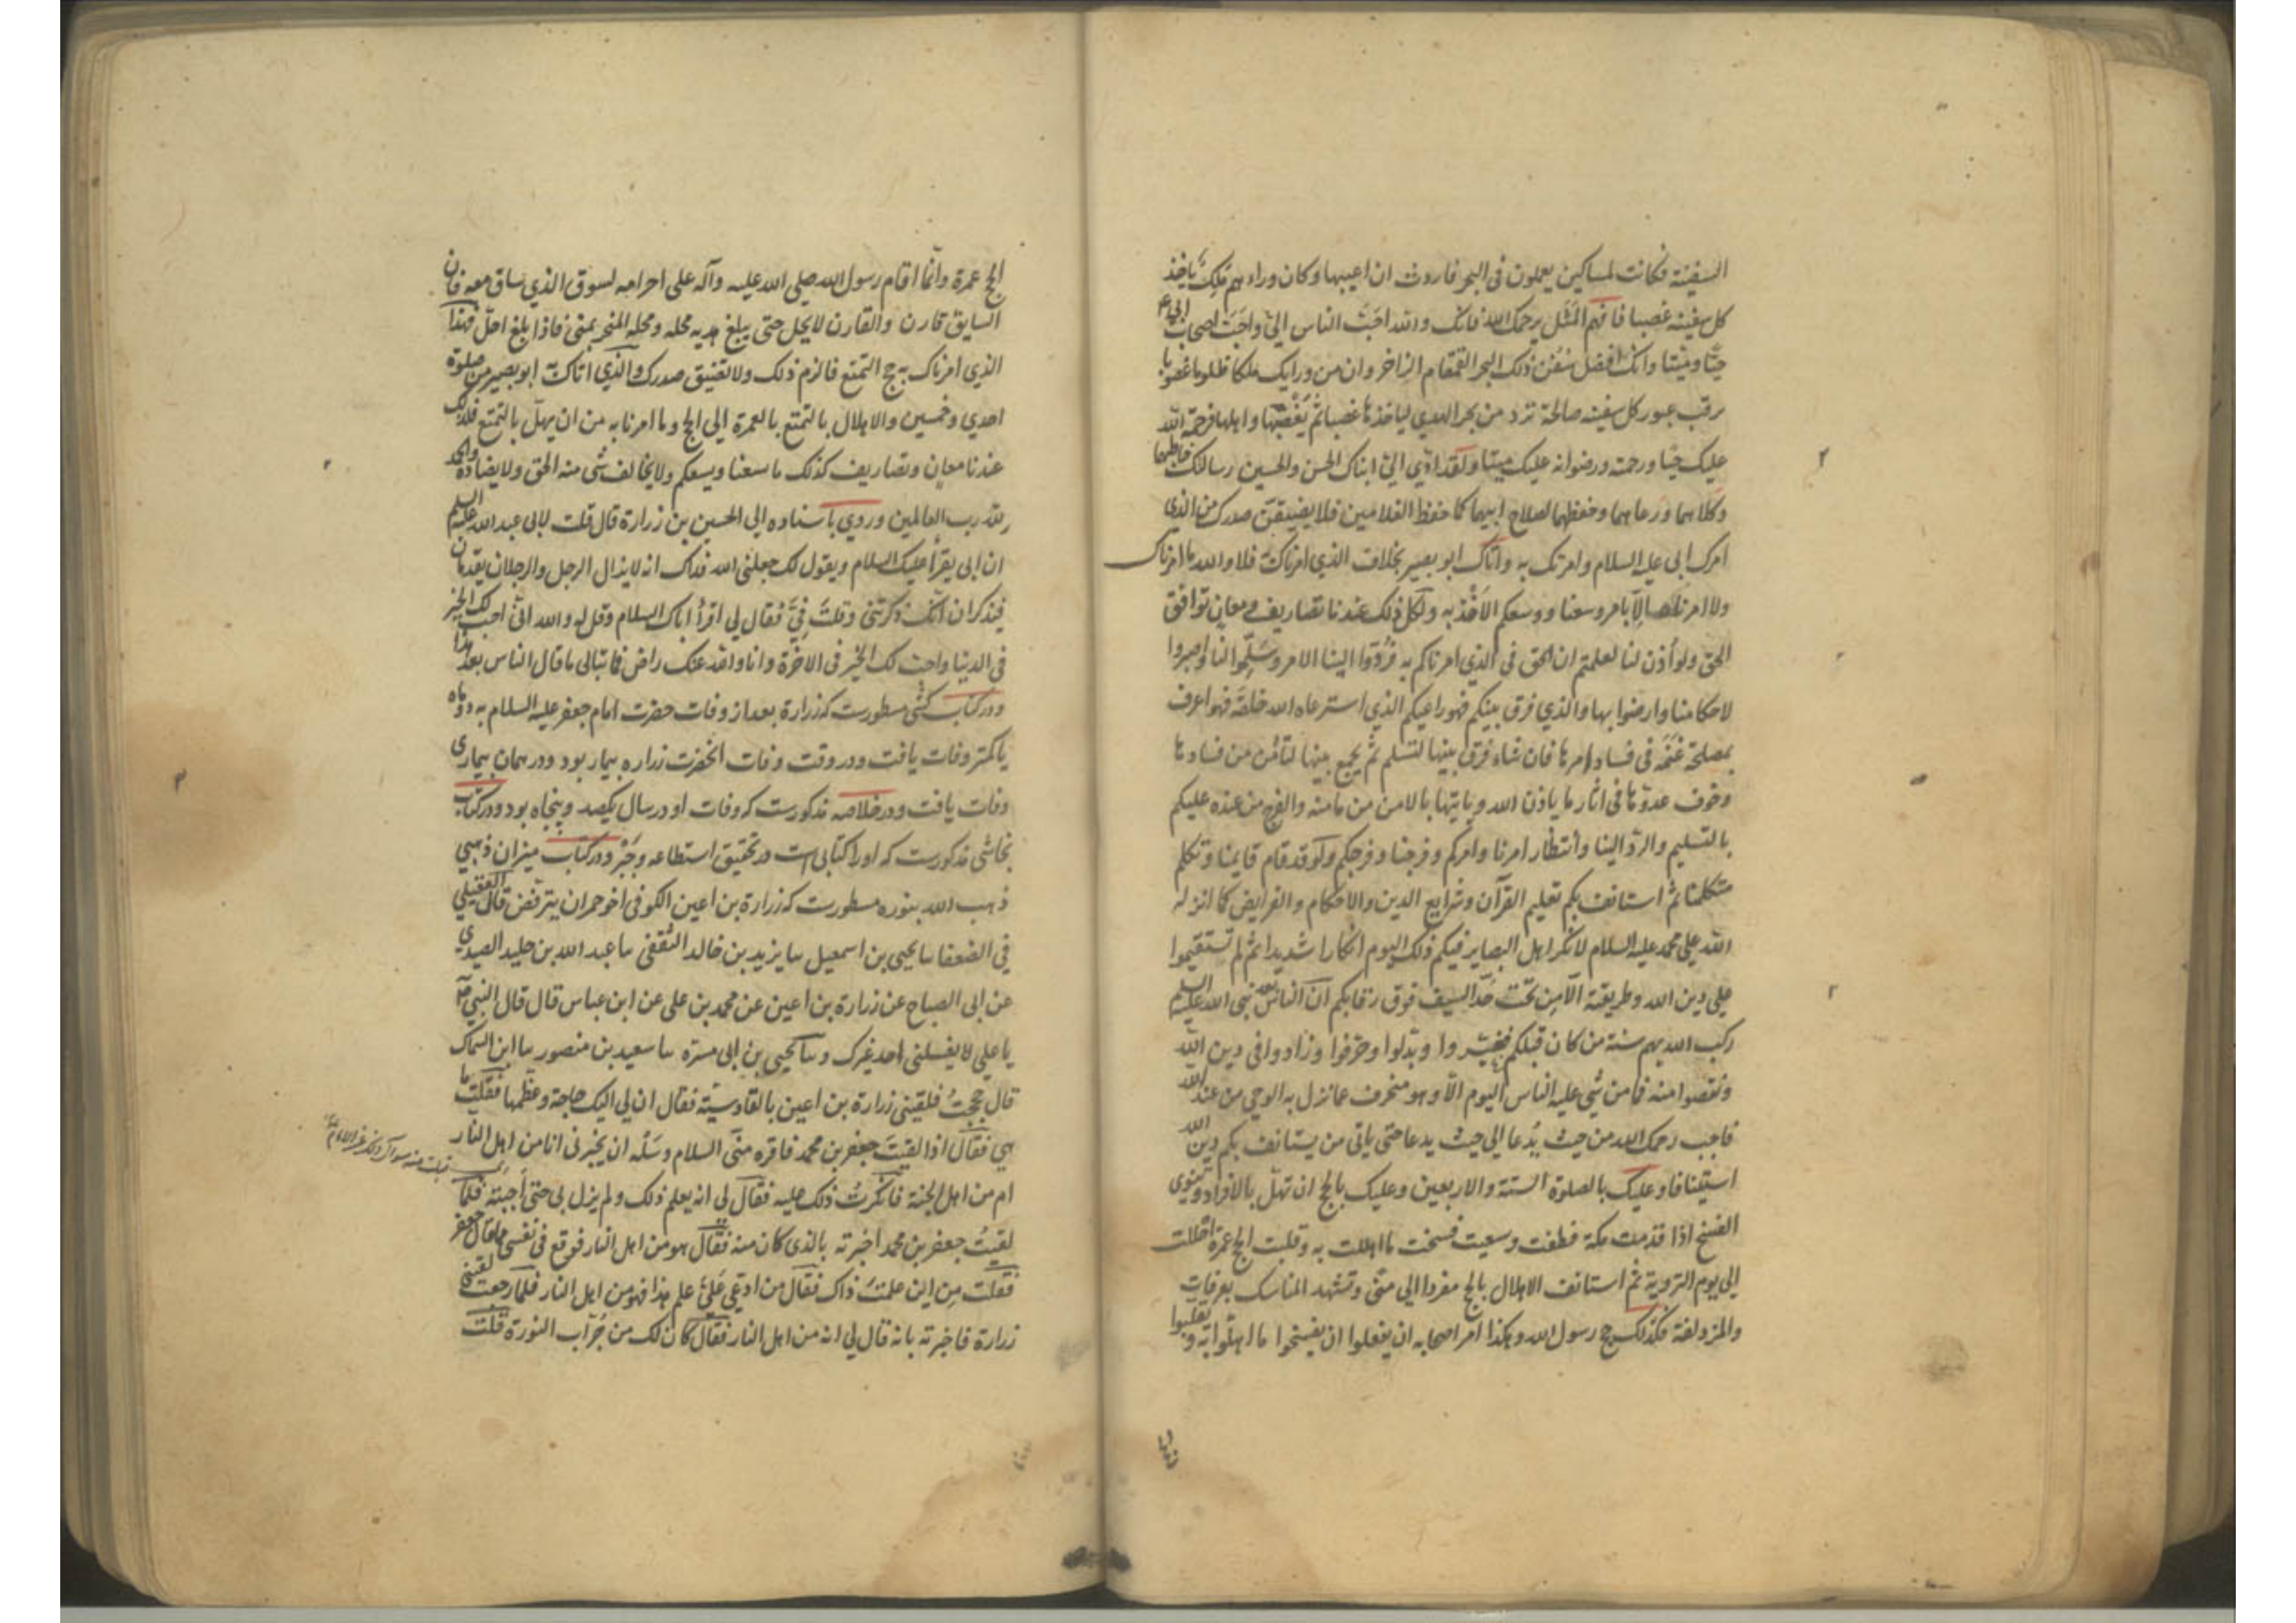 السفینة فکانت لمساکین یعملون فی البحر فاردت ان اعیبها وکان وراءهم مَلِکٌ یاخذ
کل سفینة غصبا فافهم المَثَل یرحمک الله فانک والله احَبّ الناس الیّ واحَبّ اصحاب ابی ع
حیًّا ومیّتا وانک افضل سُفُن ذلک البحر القمقام الزاخر وان من ورایک ملکا ظلوما غصوبا
یرقب عبور کل سفینة صالحة ترد من بحر الهدی لیاخذها غصبا ثم یَغْصبَها واهلها فرحمة الله
علیک حیًّا ورحمته ورضوانه علیک میتا ولقد ادّی الیّ ابناک الحسن والحسین رسالتک حاطهما
وکلاهما ورعاهما وحفظهما لصلاح ابیهما کما حفظ الغلامین فلا یضیقنّ صدرک من الذی
امرک ابی علیه السلام وامرتک به واتاک ابو بصیر بخلاف الذی امرناک به فلا والله ما امرناک
ولا امرناه الّا بامر وسعنا ووسعکم الاَخْذ به ولکل ذلک عندنا تصاریف ومعان توافق
الحق ولو اُذن لنا لعلمتم ان الحق فی الذی امرناکم به فرُدّوا الینا الامر وسَلِّموا لنا واصبروا
لاحکامنا وارضوا بها والذی فرق بینکم فهو راعیکم الذی استرعاه الله خلقه فهو اعرف
بمصلحة غنمه فی فساد امرها فان شاء فرق بینها لتسلم ثم یجمع بینها لتأمن من فسادها
وخوف عدوّها فی اثار ما یاذن الله ویاتیها بالامن من مامنه والفرج من عنده علیکم
بالتسلیم والردّ الینا وانتظار امرنا وامرکم وفرجنا وفرجکم ولو قد قام قایمنا وتکلم
متکلمنا ثم استانف بکم تعلیم القرآن وشرایع الدین والاحکام والفرایض کما انزله
الله علی محمد علیه السلام لانکر اهل البصایر فیکم ذلک الیوم انکارا شدیدا ثم لم تستقیموا
علی دین الله وطریقته الّا مِن تحت حَدّ السیف فوق رقابکم انّ الناس بعد نبی الله علیه السلم
رکب الله بهم سنة من کان قبلکم فغیّروا وبدّلوا وحرّفوا وزادوا فی دین الله
ونقصوا منه فما من شی علیه الناس الیوم الّا وهو منحرف عما نزل به الوحی من عند الله
فاجب رحمک الله من حیث تُدعا الی حیث تدعا حتی یاتی من یستانف بکم دین الله
استینافا وعلیک بالصلوة الستة والاربعین وعلیک بالحج ان تهلّ بالافراد وتنوی
الفسخ اذا قدمت مکة فطفت وسعیت فسخت ما اهللت به وقلبت الحج عمرة احللت
الی یوم الترویة ثم استانف الاهلال بالحج مفردا الی منی وتشهد المناسک بعرفات
والمزدلفة فکذلک حج رسول الله وهکذا امر اصحابه ان یفعلوا ان یفسخوا ما اهلّوا به ویقلبوا
الحج عمرة وانّما اقام رسول الله صلی الله علیه وآله علی احرامه لسوق الذی ساق معه فان
السایق قارن والقارن لا یحل حتی یبلغ هدیه محله ومحله المنحر بمنی فاذا بلغ احلّ فهذا
الذی امرناک به حج التمتع فالزم ذلک ولا تضیق صدرک والذی اتاک به ابو بصیر من صلوة
احدی وخمسین والاهلال بالتمتع بالعمرة الی الحج وما امرنا به من ان یهلّ بالتمتع فلذلک
عندنا معان وتصاریف کذلک ما سعنا ویسعکم ولا یخالف شی منه الحق ولا یضاده والحمد
لله رب العالمین وروی باسناده الی الحسین بن زرارة قال قلت لابی عبد الله علیه السلم
ان ابی یقرأ علیک السلام ویقول لک جعلنی الله فداک انه لا یزال الرجل والرجلان یقدمان
فیذکران انّک ذکرتنی وقلتَ فیَّ فقال لی اقرأ اباک السلام وقل له والله انّی احب لک الخیر
فی الدنیا واحب لک الخیر فی الاخرة وانا والله عنک راض فما تبالی ما قال الناس بعد هذا
ودر کتاب کشّی مسطورست که زرارة بعد از وفات حضرت امام جعفر علیه السلام به دو ماه
یا کمتر وفات یافت ودر وقت وفات انحضرت زراره بیمار بود ودر همان بیماری
وفات یافت ودر خلاصه مذکورست که وفات او در سال یکصد وپنجاه بود ودر کتاب
نجاشی مذکورست که او را کتابی است در تحقیق استطاعه وجَبْر ودر کتاب میزان ذهبی
ذهب الله بنوره مسطورست که زرارة بن اعین الکوفی اخو حمران یترفّض قال العقیلی
فی الضعفا سا یحیی بن اسمعیل سا یزید بن خالد الثقفی سا عبد الله بن خلید الصیدی
عن ابی الصباح عن زرارة بن اعین عن محمد بن علی عن ابن عباس قال قال النبی ص
یا علی لا یغسلنی احد غیرک وسا یحیی بن ابی مسرّه سا سعید بن منصور سا ابن السماک
قال حججتُ فلقینی زرارة بن اعین بالقادسیّة فقال ان لی الیک حاجة وعظّمها فقلت ما
هی فقال اذا لقیتَ جعفر بن محمد فاقره منّی السلام وسَلْه ان یخبرنی انا من اهل النار
ام من اهل الجنة فانکرتُ ذلک علیه فقال لی انه یعلم ذلک ولم یزل بی حتی اجبته فلمّا
لقیتُ جعفر بن محمد اخبرته بالذی کان منه فقال هو من اهل النار فوقع فی نفسی مما قال جعفر
فقلت مِن این علمتَ ذاک فقال من ادّعی عَلَیَّ علم هذا فهو من اهل النار فلمّا رجعت لقینی
زرارة فاخبرته بانه قال لی انه من اهل النار فقال کان لک من جُرآب النورة قلت